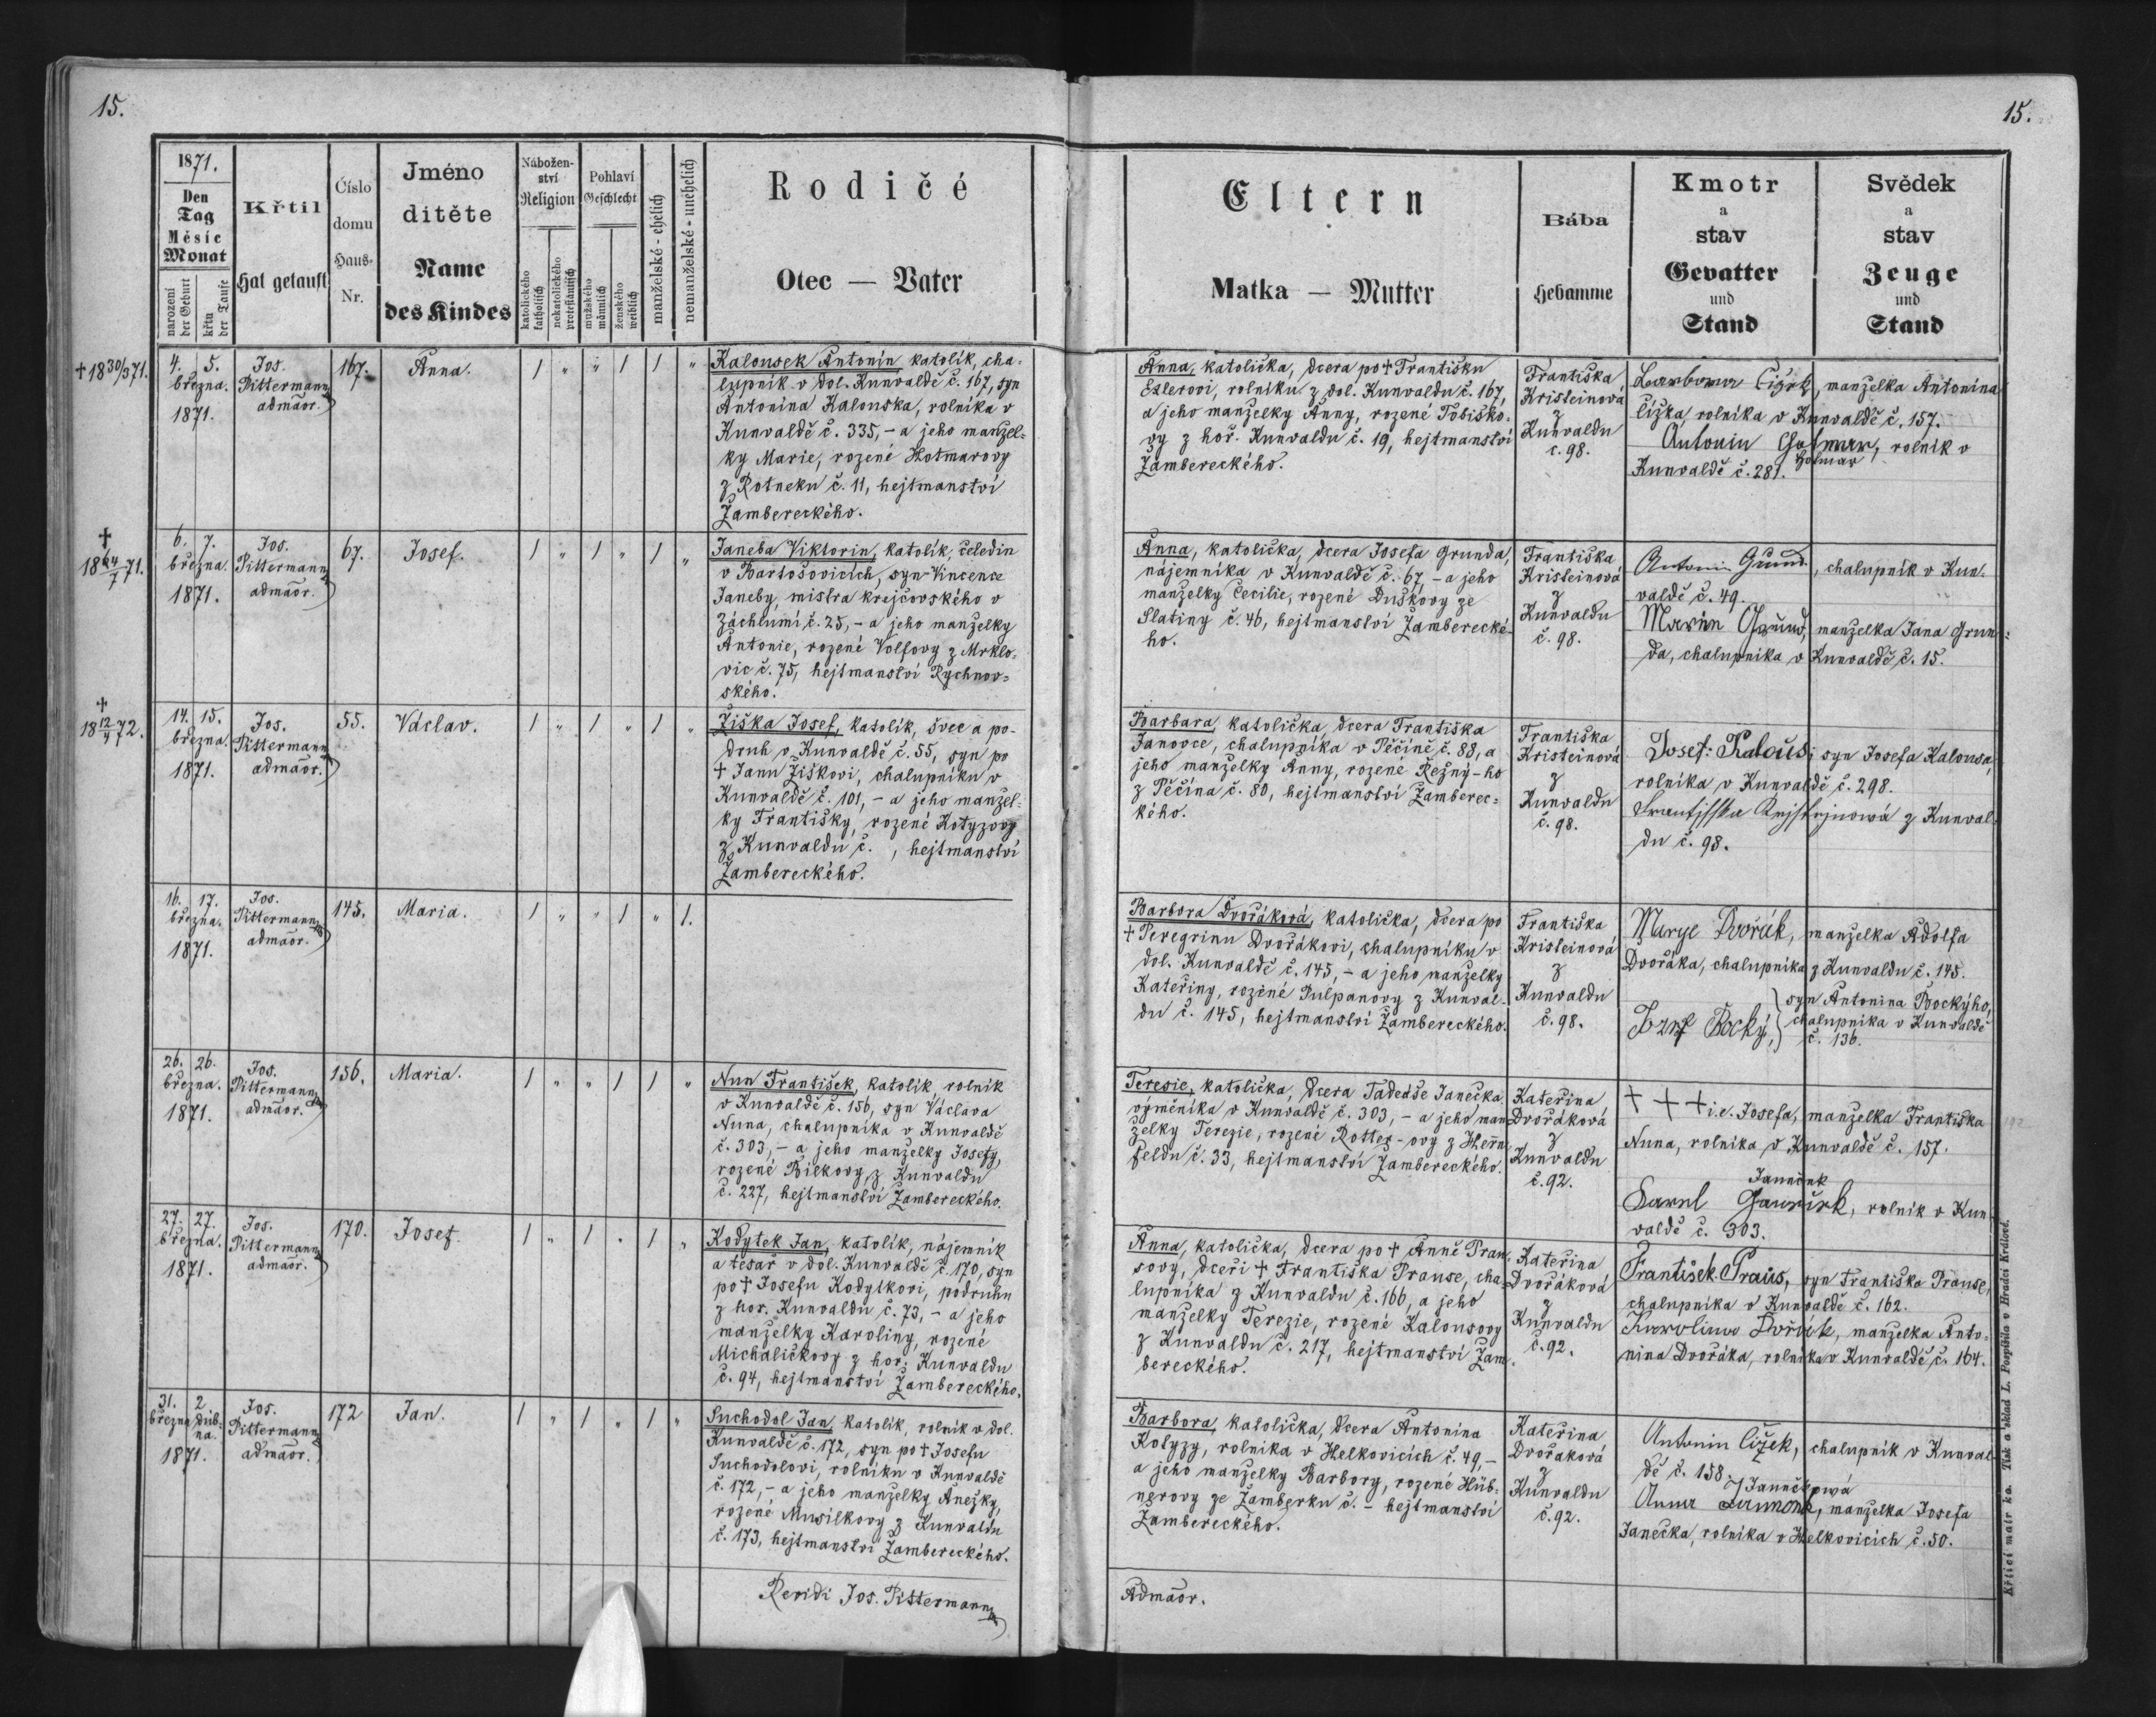 15.
15.
1871.
Den
Tag
Měsíc
Monat
narození
der Geburt
křtu
der Taufe
Křtil
Hat getauft
Číslo
domu
Haus-
Nr.
Jméno
ditěte
Name
des Kindes
Nábožen-
ství
Religion
katolického
katholisch
nekatolického
protestantisch
Pohlaví
Geschlecht
mužského
männlich
ženského
weiblich
manželské - ehelich
nemanželské - unehelich
Rodičé
Otec — Vater
Eltern
Matka — Mutter
Bába
Hebamme
Kmotr
a
stav
Gevatter
und
Stand
Svědek
a
stav
Zeuge
und
Stand
†18 30/3 71.
4. 5.
března.
1871.
Jos.
Pittermann
admāor.
167.
Anna.
1 " " 1 1 "
Kalousek Antonín, katolík, cha-
lupník v dol. Kunvaldě č. 167, syn
Antonína Kalouska, rolníka v
Kunvaldě č. 335, – a jeho manžel-
ky Marie, rozené Hotmarovy
z Rotneku č. 11, hejtmanství
Žambereckého.
Anna, katolička, dcera po † Františku
Eslerovi, rolníku z dol. Kunvaldu č. 167,
a jeho manželky Anny, rozené Tobiško-
vy z hoř. Kunvaldu č. 19, hejtmanství
Žambereckého.
Františka
Kristeinová
z
Kunvaldu
č. 98.
Barbora Čížek, manželka Antonína
Čížka, rolníka v Kunvaldě č. 157.
Antonin Hotmar, rolník v
Hotmar
Kunvaldě č. 281.
†
18 /7 71.
6. 7.
března.
1871.
Jos.
Pittermann
admāor.
67.
Josef.
1 " 1 " 1 "
Janeba Viktorin, katolík, čeledín
v Bartošovicích, syn Vincence
Janeby, mistra krejčovského v
Záchlumí č. 25, – a jeho manželky
Antonie, rozené Volfovy z Mrklo-
vic č. 75, hejtmanství Rychnov-
ského.
Anna, katolička, dcera Josefa Grunda,
nájemníka v Kunvaldě č. 67 – a jeho
manželky Cecilie, rozené Duškovy ze
Slatiny č. 46, hejtmanství Žamberecké-
ho.
Františka
Kristeinová
z
Kunvaldu
č. 98.
Antonin Grund, chalupník v Kun-
valdě č. 49.
Marie Grund, manželka Jana Grun-
da, chalupníka v Kunvaldě č. 15.
†
18 12/4 72.
14. 15.
března.
1871.
Jos.
Pittermann
admāor.
55.
Václav.
1 " 1 " 1 "
Žiška Josef, katolík, švec a po-
druh v Kunvaldě č. 55, syn po
† Janu Žiškovi, chalupníku v
Kunvaldě č. 101, – a jeho manžel-
ky Františky, rozené Kotyzovy
z Kunvaldu č. , hejtmanství
Žambereckého.
Barbara, katolička, dcera Františka
Janovce, chalupníka v Pěčíně č. 88, a
jeho manželky Anny, rozené Řežný-ho
z Pěčína č. 80, hejtmanství Žamberec-
kého.
Františka
Kristeinová
z
Kunvaldu
č. 98.
Josef Kalous, syn Josefa Kalousa,
rolníka v Kunvaldě č. 298.
z Kunval-
du č. 98.
16. 17.
března.
1871.
Jos.
Pittermann
admāor.
145.
Maria.
1 " " 1 " 1.
Barbora Dvořáková, katolička, dcera po
† Peregrinu Dvořákovi, chalupníku v
dol. Kunvaldě č. 145, – a jeho manželky
Kateřiny, rozené Pulpanovy z Kunval-
du č. 145, hejtmanství Žambereckého.
Františka
Kristeinová
z
Kunvaldu
č. 98.
Marye Dvořák, manželka Adolfa
Dvořáka, chalupníka z Kunvaldu č. 145.
Jozef Bocký, syn Antonína Bockýho,
chalupníka v Kunvaldě
č. 136.
26. 26.
března.
1871.
Jos.
Pittermann
admāor.
156.
Maria.
1 " " 1 1 "
Nun František, katolík, rolník
v Kunvaldě č. 156, syn Václava
Nuna, chalupníka v Kunvaldě
č. 303, – a jeho manželky Josefy,
rozené Bílkovy z Kunvaldu
č. 227, hejtmanství Žambereckého.
Teresie, katolička, dcera Tadeáše Janečka,
výměníka v Kunvaldě č. 303, – a jeho man-
želky Terezie, rozené Rotter-ovy z Herrn-
feldu č. 33, hejtmanství Žambereckého.
Kateřina
Dvořáková
z
Kunvaldu
č. 92.
† † † i.e. Josefa, manželka Františka
Nuna, rolníka v Kunvaldě č. 157.
Janeček
Karel Janeček, rolník v Kun-
valdě č. 303.
27. 27.
března.
1871.
Jos.
Pittermann
admāor.
170.
Josef.
1 " 1 " 1 "
Kodytek Jan, katolík, nájemník
a tesař v dol. Kunvaldě č. 170, syn
po † Josefu Kodytkovi, podruhu
z hor. Kunvaldu č. 73, – a jeho
manželky Karoliny, rozené
Michaličkovy z hor. Kunvaldu
č. 94, hejtmanství Žambereckého.
Anna, katolička, dcera po † Anně Prau-
sovy, dceři † Františka Prause, cha-
lupníka z Kunvaldu č. 166, a jeho
manželky Terezie, rozené Kalousovy
z Kunvaldu č. 217, hejtmanství Žam-
bereckého.
Kateřina
Dvořáková
z
Kunvaldu
č. 92.
František Praus, syn Františka Prause,
chalupníka v Kunvaldě č. 162.
Karolina Dořák, manželka Anto-
nína Dvořáka, rolníka v Kunvaldě č. 164.
31. 2
března dub-
na.
1871.
Jos.
Pittermann
admāor.
172
Jan.
1 " 1 " 1 "
Suchodol Jan, katolík, rolník v dol.
Kunvaldě č. 172, syn po † Josefu
Suchodolovi, rolníku v Kunvaldě
č. 172, – a jeho manželky Anežky,
rozené Musilkovy z Kunvaldu
č. 173, hejtmanství Žambereckého.
Barbora, katolička, dcera Antonína
Kotyzy, rolníka v Helkovicích č. 49, –
a jeho manželky Barbory, rozené Hüb-
nerovy ze Žamberku č. – hejtmanství
Žambereckého.
Kateřina
Dvořaková
z
Kunvaldu
č. 92.
Antonin Čížek, chalupník v Kunval-
dě č. 158
Janečkowá
Anna, manželka Josefa
Janečka, rolníka v Helkovicích č. 50.
Revidi Jos. Pittermann
Admāor.
Křticí matrika. Tisk a sklad L. Pospíšila v Hradci Králové.